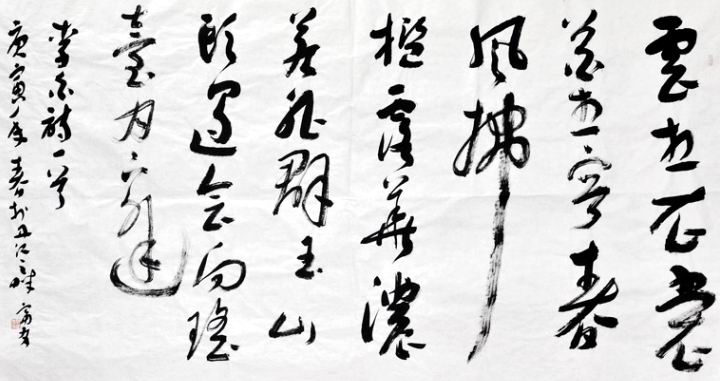 雲想衣裳
花想容春
風拂
檻露華濃
若非群玉山
頭見會向瑤
臺月下逢
李白詩一首
庚寅年春於